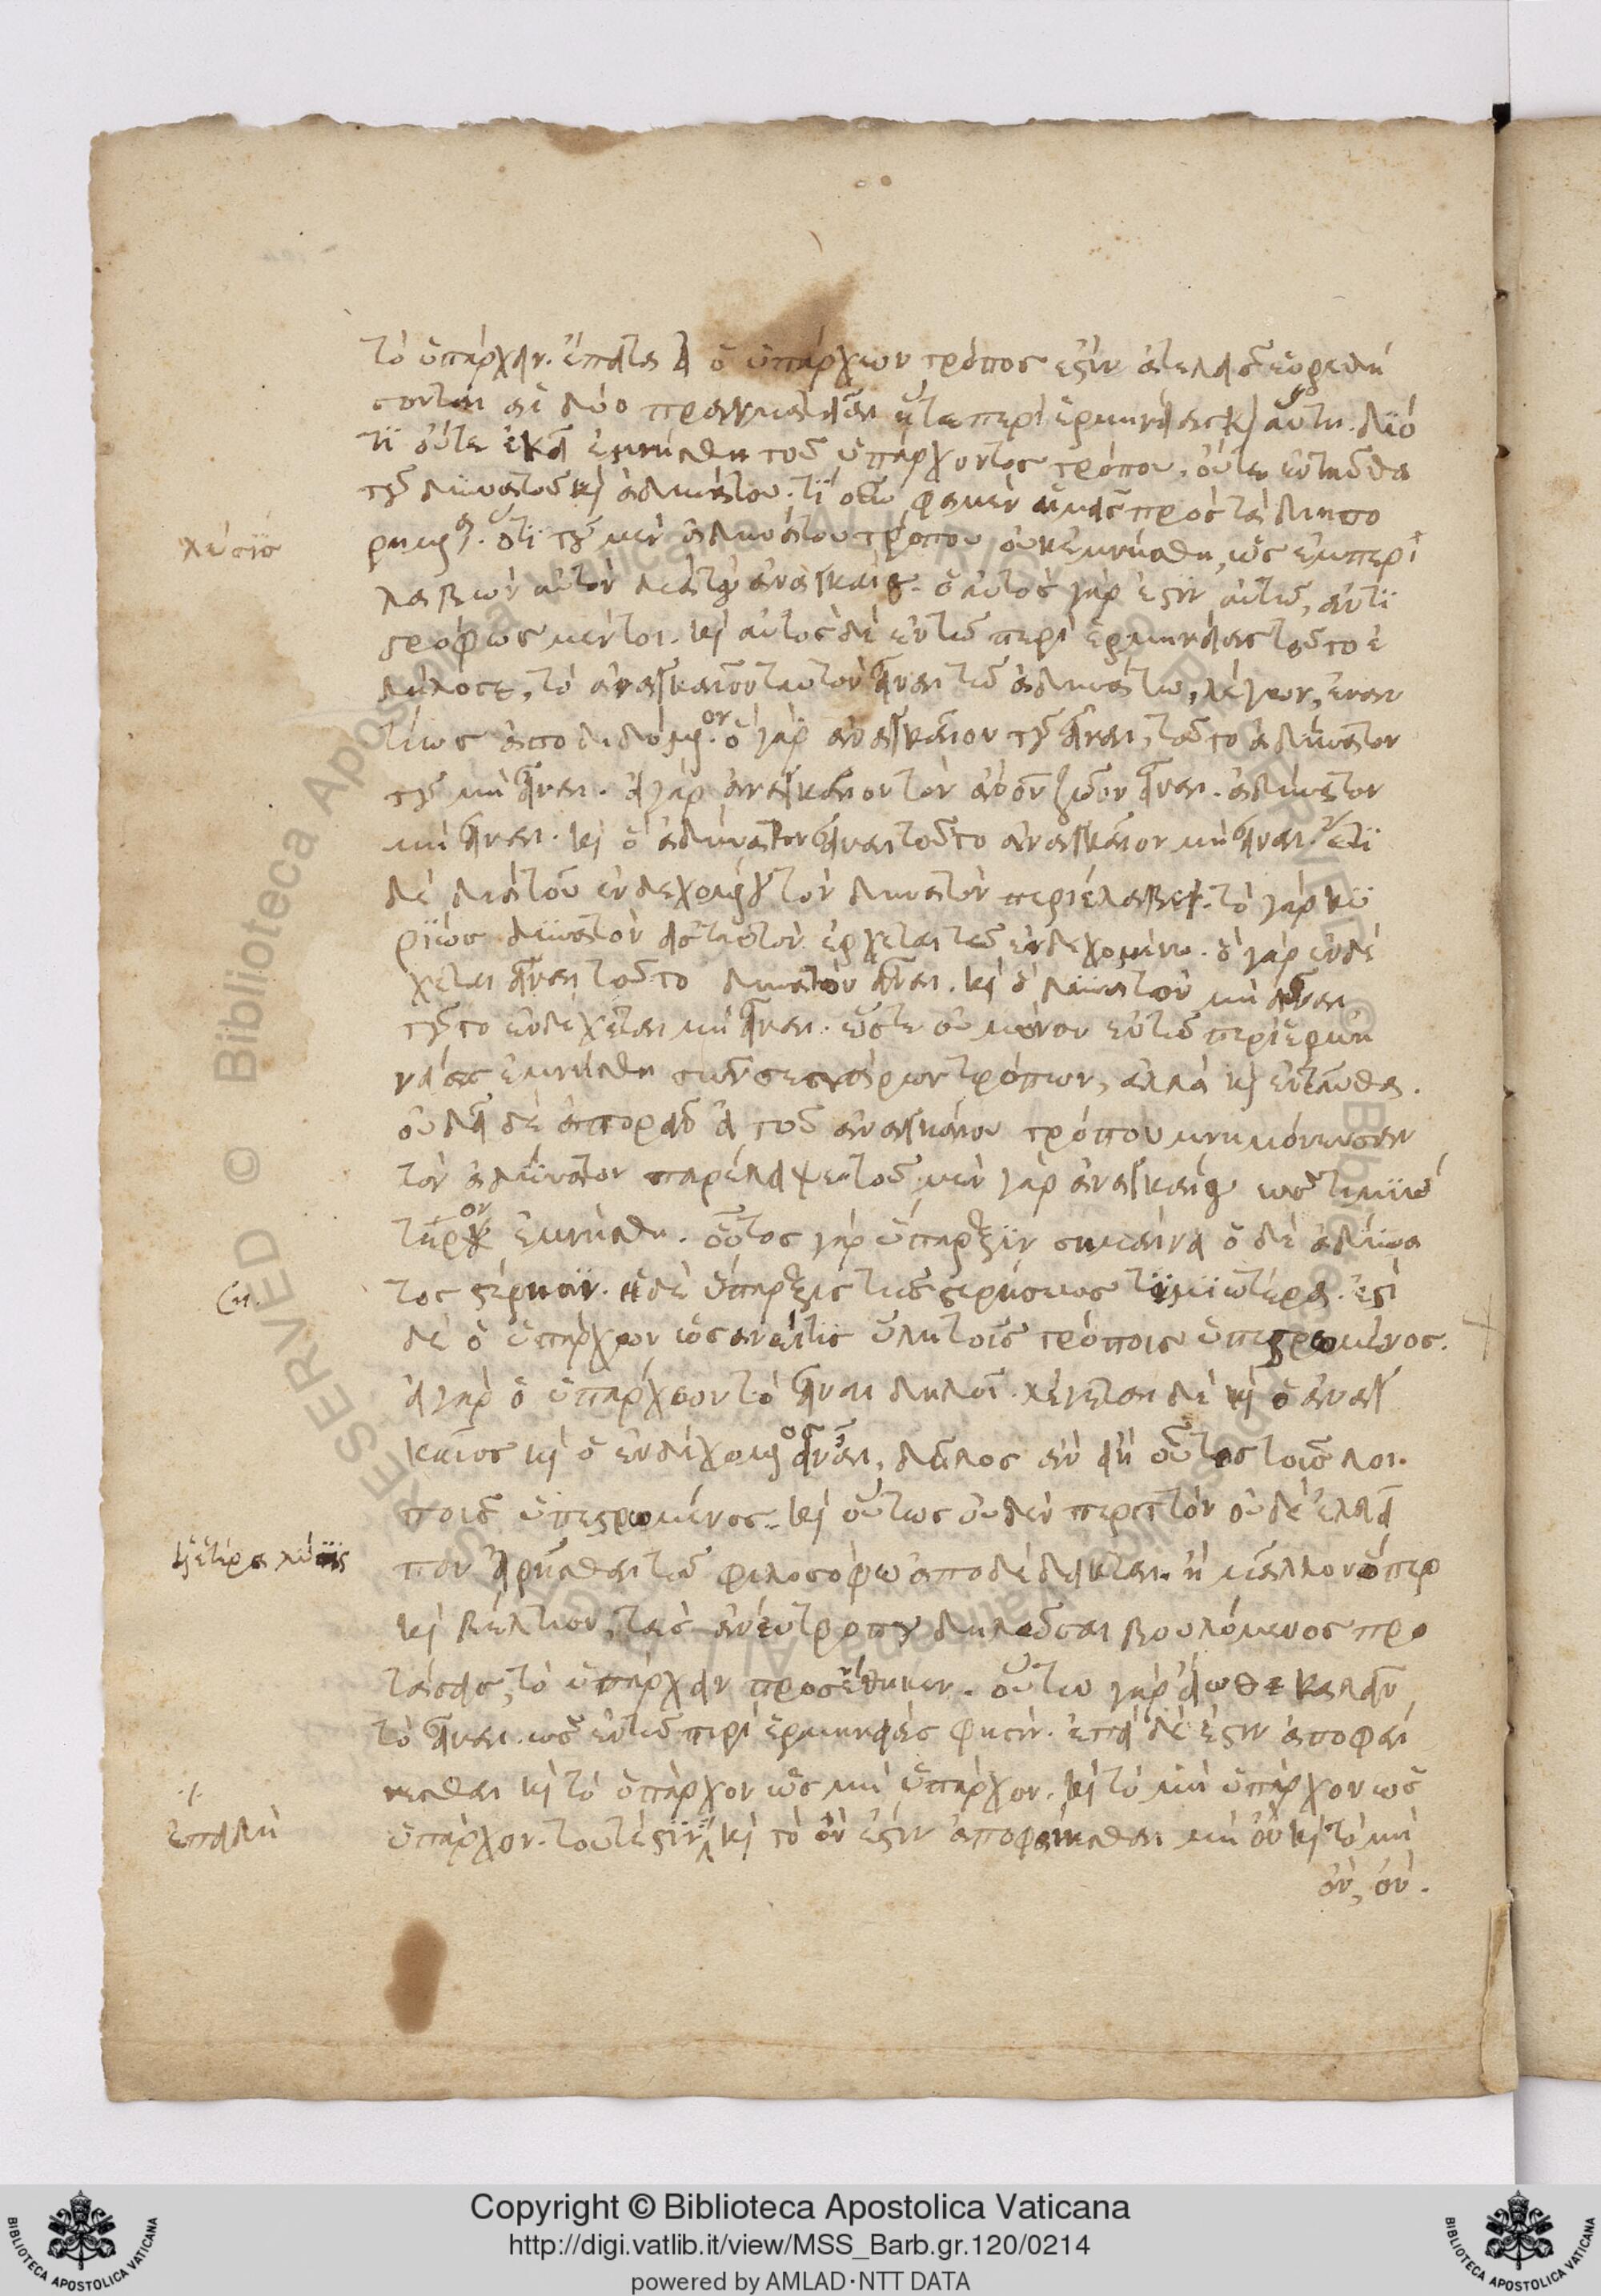 τὸ ὑπάρχειν. ἔπειτα εἰ ὁ ὑπάρχων τρόπος ἐστὶν ἀτελεῖς εὑρεθή
σονται αἱ δύο πραγματεῖαι ἥτε περὶ ἑρμηνείας καὶ αὕτη. διό
τι οὔτε ἐκεῖ ἐμνήσθη τοῦ ὑπάρχοντος τρόπου, οὔτε ἐνταῦθα
τοῦ δυνατοῦ καὶ ἀδυνάτου. τί οὖν φαμὲν ἡμεῖς πρὸς τὰ διηπο
λύσις
ρημένα. ὅτι τοῦ μὲν ἀδυνάτου τρόπου οὐκ ἐμνήσθη, ὡς ἐμπερι
λαβὼν αὐτὸν διὰ τοῦ ἀναγκαίου. ὁ αὐτὸς γάρ ἐστιν αὐτῷ, ἀντι
στρόφως μέντοι. καὶ αὐτὸς δὲ ἐν τῷ περὶ ἑρμηνείας τοῦτο ἐ
δήλωσε, τὸ ἀναγκαῖον ταυτὸν εἶναι τῷ ἀδυνάτῳ, λέγων, ἐναν
τίως ἀποδιδόμενον. ὃ γὰρ ἀναγκαῖον τοῦ εἶναι, τοῦτο ἀδύνατον
τοῦ μὴ εἶναι. εἰ γὰρ ἀναγκαῖον τὸν ἄνον ζῷον εἶναι. ἀδύνατον
μὴ εἶναι. καὶ ὃ ἀδύνατον εἶναι τοῦτο ἀναγκαῖον μὴ εἶναι. ἔτι
δὲ διὰ τοῦ ἐνδεχομένου τὸν δυνατὸν περιέλαβε. τὸ γὰρ κυ
ρίως δυνατὸν εἰς ταυτὸν ἔρχεται τῷ ἐνδεχομένῳ. ὃ γὰρ ἐνδέ
χεται εἶναι τοῦτο δυνατὸν εἶναι. καὶ ὃ δυνατὸν μὴ εἶναι
τοῦτο ἐνδέχεται μὴ εἶναι. ὥστε οὐ μόνον ἐν τῷ περὶ ἑρμη
νείας ἐμνήσθη τῶν τεσσάρων τρόπων, ἀλλὰ καὶ ἐνταῦθα.
οὐ δεῖ δὲ ἀπορεῖν εἰ τοῦ ἀναγκαίου τρόπου μνημονεύσας
τὸν ἀδύνατον παρέλειψε. τοῦ μὲν γὰρ ἀναγκαίου ὡς τιμιω
τέρου ἐμνήσθη. οὗτος γὰρ ὕπαρξιν σημαίνει ὁ δὲ ἀδύνα
ση.
τος στέρησιν. ἡ δὲ ὕπαρξις τῆς στερήσεως τιμιωτέρα. ἔτι
δὲ ὁ ὑπάρχων ὡς ἀνείτις ὕλη τοῖς τρόποις ὑπεστρωμένος.
εἰ γὰρ ὁ ὑπάρχων τὸ εἶναι δηλοῖ. λέγεται δὲ καὶ ὁ ἀναγ
καῖος καὶ ὁ ἐνδεχόμενος εἶναι, δῆλος ἂν εἴη οὗτος τοῖς λοι.
ποῖς ὑπεστρωμένος. καὶ οὕτως οὐδὲν περιττὸν οὐδὲ ἐλλεῖ
καὶ ἑτέρα λύσις
πον εἰρῆσθαι τῷ φιλοσόφῳ ἀποδέδεικται. ἢ μᾶλλον ὅπερ
καὶ βέλτιον, τὰς ἄνευ τρόπου δηλῶσαι βουλόμενος προ
τάσεις, τὸ ὑπάρχειν προσέθηκεν. οὕτω γὰρ εἴωθε καλεῖν
τὸ εἶναι. ὡς ἐν τῷ περὶ ἑρμηνείας φησίν. ἐπεὶ δὲ ἔστιν ἀποφαί
νεσθαι καὶ τὸ ὑπάρχον ὡς μὴ ὑπάρχον. καὶ τὸ μὴ ὑπάρχον ὡς
ἐπειδὴ
ὑπάρχον. τουτέστιν καὶ τὸ ὂν ἔστιν ἀποφαίνεσθαι μὴ ὂν καὶ τὸ μὴ
ὄν, ὄν.
Copyright © Biblioteca Apostolica Vaticana
http://digi.vatlib.it/view/MSS_Barb.gr.120/0214
powered by AMLAD·NTT DATA